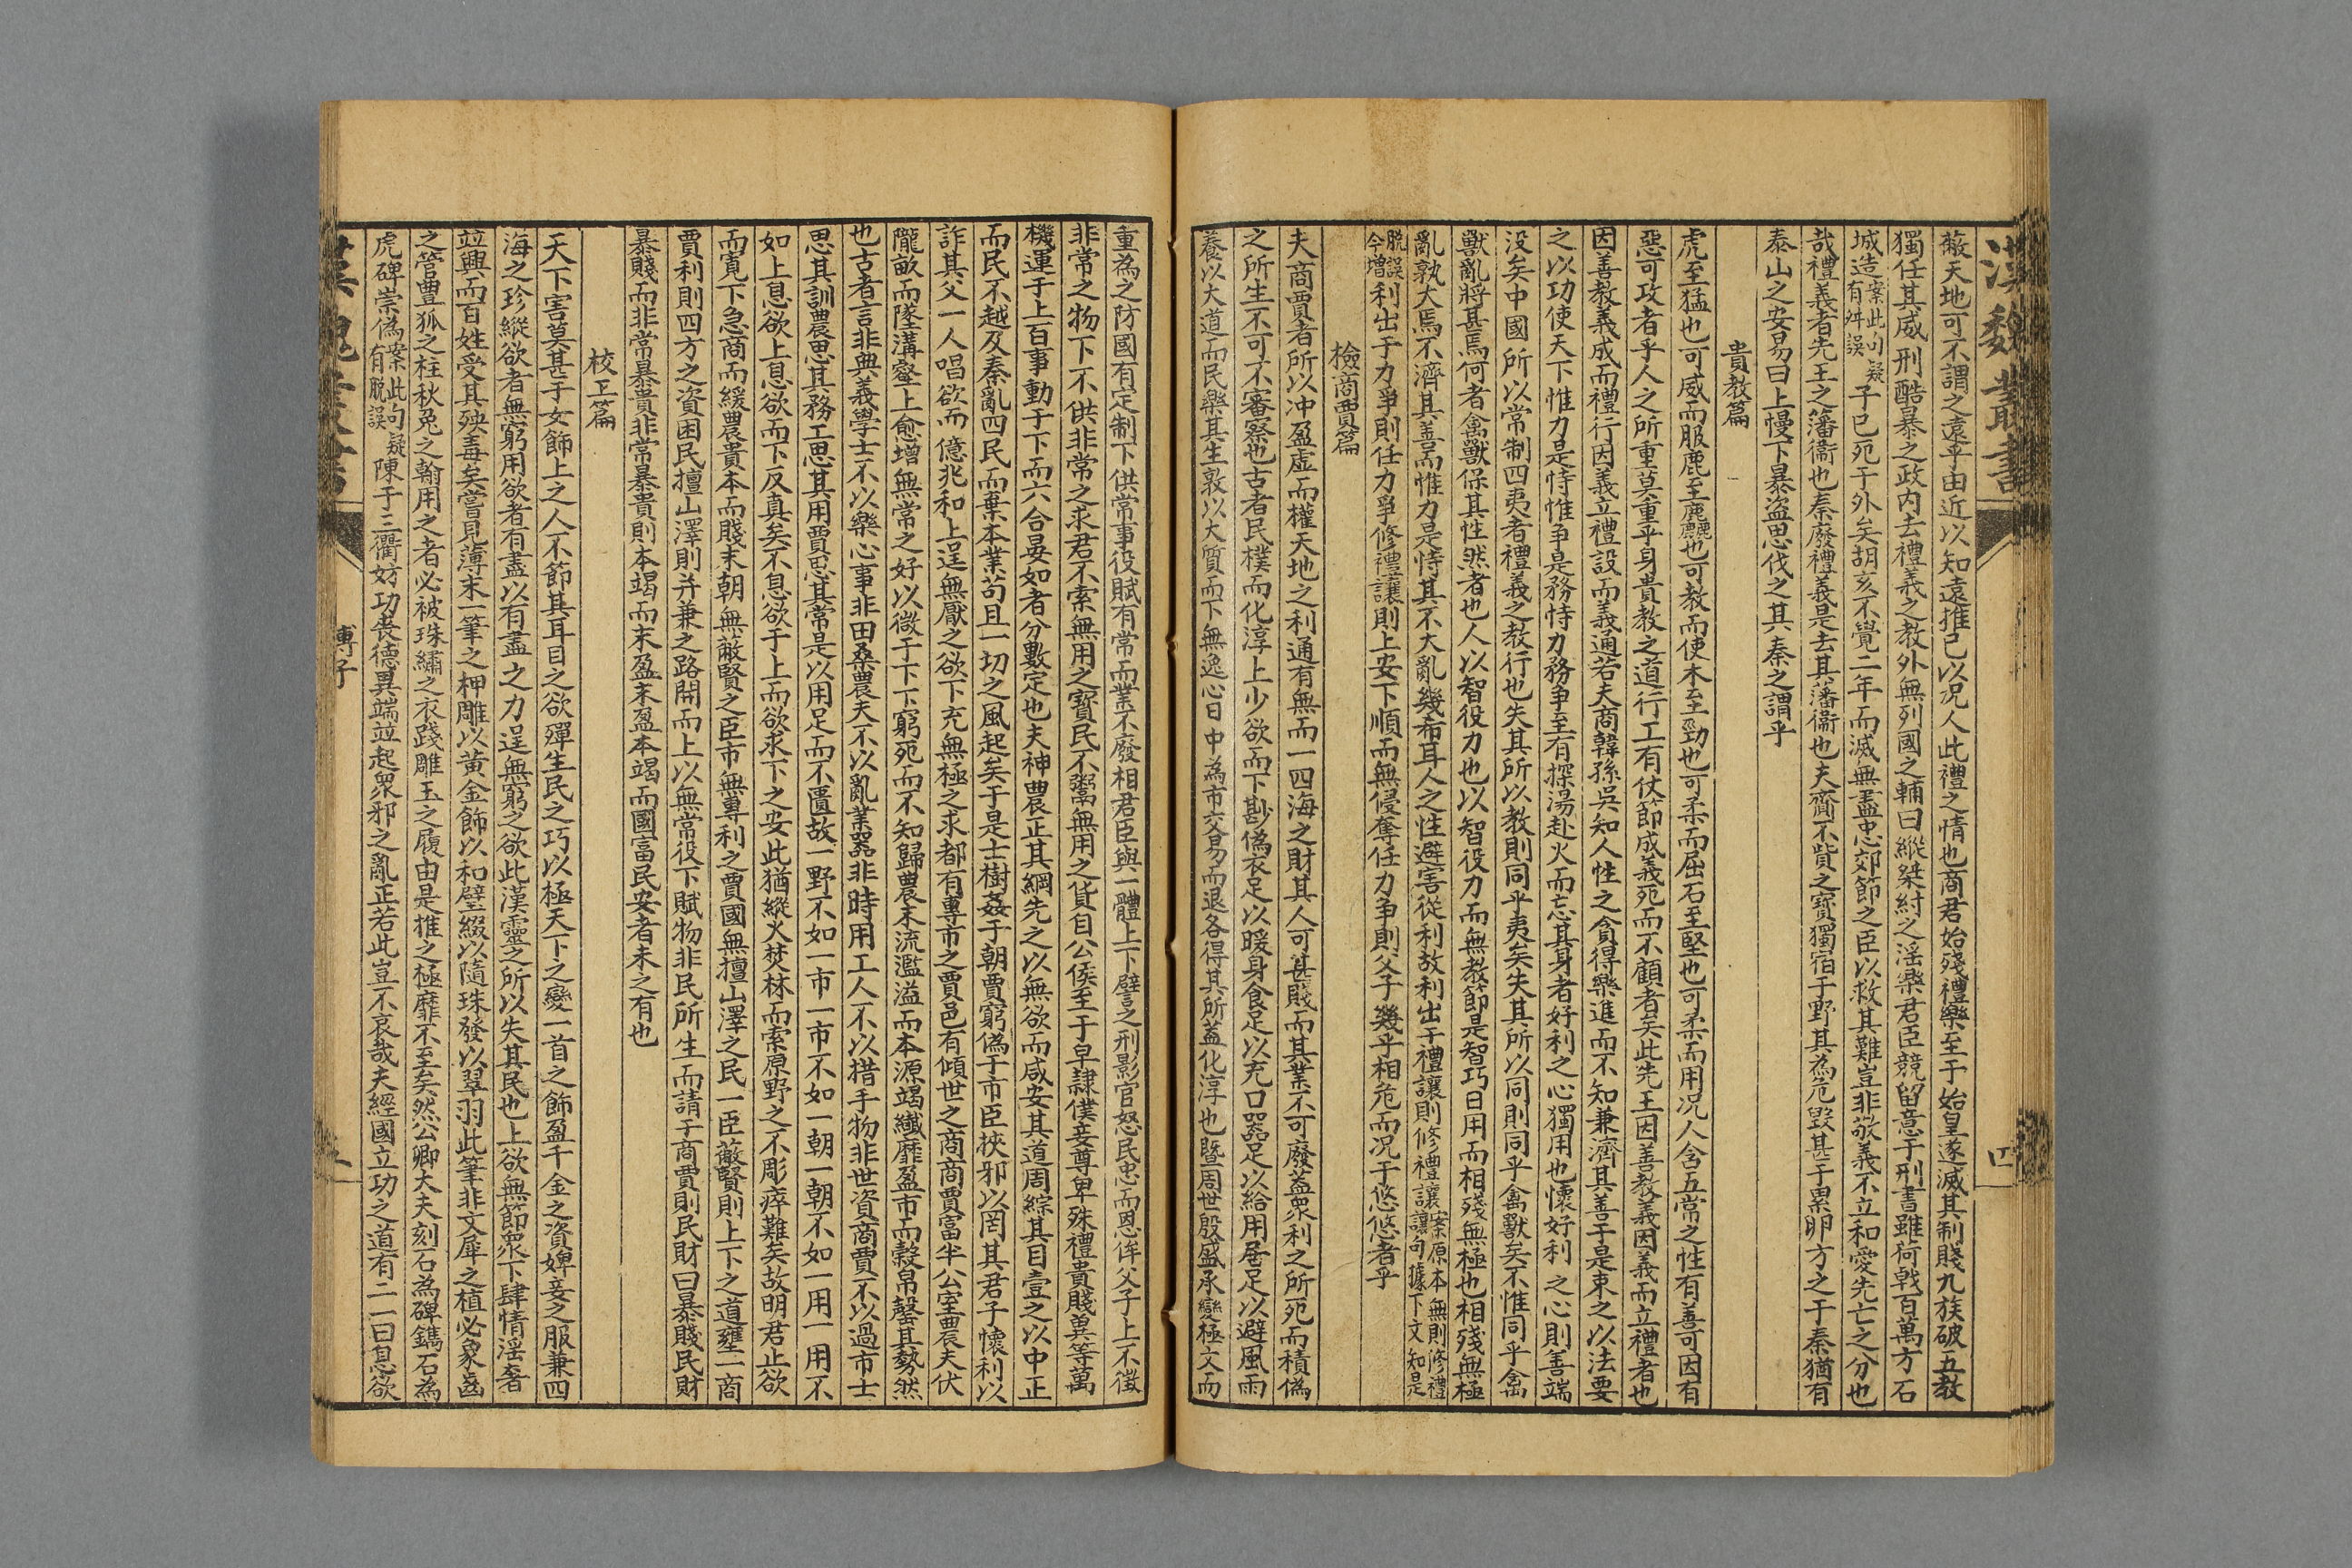 漢魏叢書
四
蔽天地可不謂之遠乎由近以知遠推己以况人此禮之情也商君始殘禮樂至于始皇遂滅其制賤九族破五教
獨任其威刑酷暴之政内去禮義之教外無列國之輔日縱桀紂之淫樂君臣競留意于刑書雖荷戟百萬方石
城造案此句疑有舛誤子已死于外矣胡亥不覺二年而滅無盡忠効節之臣以救其難豈非敬義不立和愛先亡之分也
哉禮義者先王之藩衞也秦廢禮義是去其藩衞也夫齎不貲之寶獨宿于野其為危毁甚于累卵方之于秦猶有
泰山之安易曰上慢下暴盗思伐之其秦之謂乎
貴教篇
虎至猛也可威而服鹿至麤也可教而使木至勁也可柔而屈石至堅也可柔而用况人含五常之性有善可因有
惡可攻者乎人之所重莫重乎身貴教之道行工有仗節成義死而不顧者矣此先王因善教義因義而立禮者也
因善教義成而禮行因義立禮設而義通若夫商韓孫吳知人性之貪得樂進而不知兼濟其善于是束之以法要
之以功使天下惟力是恃惟争是務恃力務争至有探湯赴火而忘其身者好利之心獨用也懷好利之心則善端
没矣中國所以常制四夷者禮義之教行也失其所以教則同乎夷矣失其所以同則同乎禽獸矣不惟同乎禽
獸亂將甚焉何者禽獸保其性然者也人以智役力也以智役力而無教節是智巧日用而相殘無極也相殘無極
亂孰大焉不濟其善而惟力是恃其不大亂幾希耳人之性避害從利故利出于禮讓則修禮讓案原本無則修禮讓句據下文知是
脱誤今增利出于力爭則任力爭修禮讓則上安下順而無侵奪任力争則父子幾乎相危而况于悠悠者乎
檢商賈篇
夫商賈者所以冲盈虚而權天地之利通有無而一四海之財其人可甚賤而其業不可廢蓋衆利之所充而積偽
之所生不可不審察也古者民樸而化淳上少欲而下尠偽衣足以暖身食足以充口器足以給用居足以避風雨
養以大道而民樂其生敦以大質而下無逸心日中為市交易而退各得其所蓋化淳也暨周世殷盛承變極文而
重為之防國有定制下供常事役賦有常而業不廢相君臣與一體上下譬之刑影官恕民忠而恩侔父子上不徵
非常之物下不供非常之求君不索無用之寶民不鬻無用之貨自公侯至于皁隸僕妾尊卑殊禮貴賤異等萬
機運于上百事動于下而六合晏如者分數定也夫神農正其綱先之以無欲而咸安其道周綜其目壹之以中正
而民不越及秦亂四民而棄本業苟且一切之風起矣于是士樹姦于朝賈窮偽于市臣挾邪以罔其君子懷利以
詐其父一人唱欲而億兆和上逞無厭之欲下充無極之求都有專市之賈邑有傾世之商商賈富半公室農夫伏
隴畝而墜溝壑上愈增無常之好以徵于下下窮死而不知歸農末流濫溢而本源竭纖靡盈市而穀帛罄其勢然
也古者言非典義學士不以樂心事非田桑農夫不以亂業器非時用工人不以措手物非世資商賈不以過市士
思其訓農思其務工思其用賈思其常是以用足而不匱故一野不如一市一市不如一朝一朝不如一用一用不
如上息欲上息欲而下反真矣不息欲于上而欲求下之安此猶縱火焚林而索原野之不彫瘁難矣故明君止欲
而寬下急商而緩農貴本而賤末朝無蔽賢之臣市無專利之賈國無擅山澤之民一臣蔽賢則上下之道壅一商
賈利則四方之資困民擅山澤則并兼之路開而上以無常役下賦物非民所生而請于商賈則民財日暴賤民財
暴賤而非常暴貴非常暴貴則本竭而末盈末盈本竭而國富民安者未之有也
校工篇
天下害莫甚于女飾上之人不節其耳目之欲殫生民之巧以極天下之變一首之飾盈千金之資婢妾之服兼四
海之珍縱欲者無窮用欲者有盡以有盡之力逞無窮之欲此漢靈之所以失其民也上欲無節衆下肆情淫奢
竝興而百姓受其殃毒矣嘗見漢末一筆之柙雕以黄金飾以和璧綴以隨珠發以翠羽此筆非文犀之植必象齒
之管豐狐之柱秋兔之翰用之者必被珠繡之衣踐雕玉之履由是推之極靡不至矣然公卿大夫刻石為碑鐫石為
虎碑崇偽案此句疑有脱誤陳于三衢妨功喪德異端竝起衆邪之亂正若此豈不哀哉夫經國立功之道有二一曰息欲
傅子